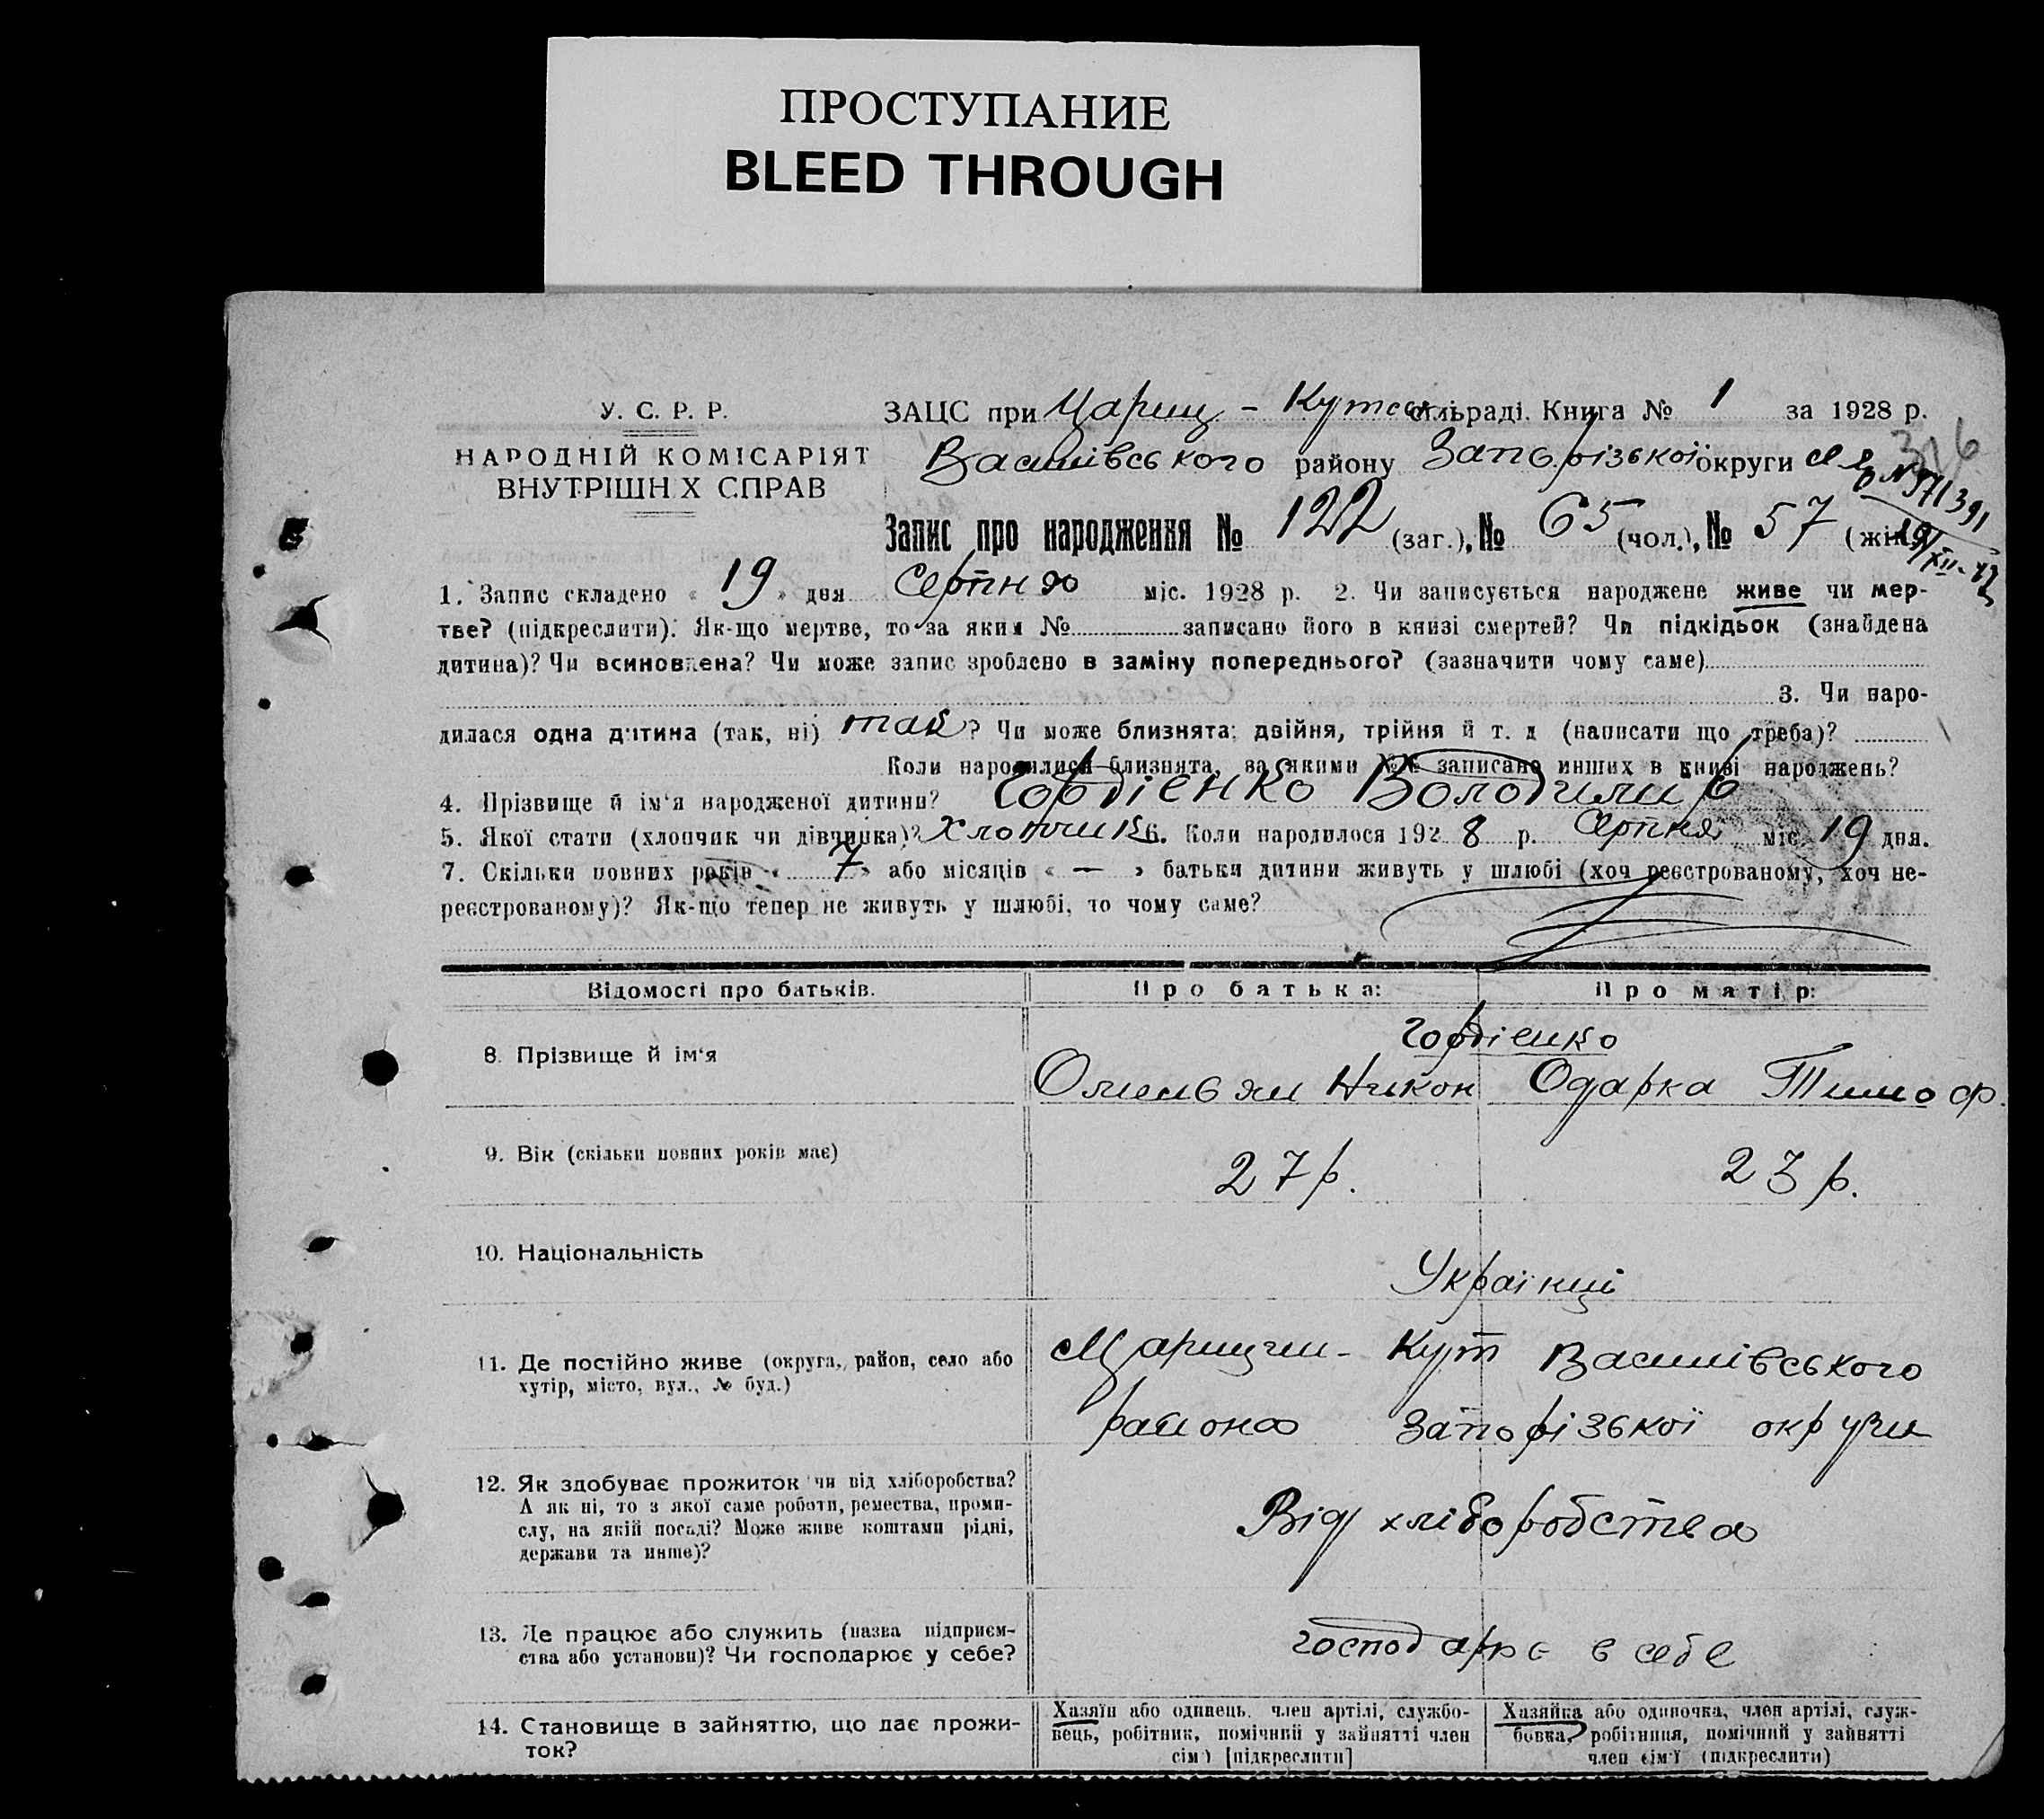 ПРОСТУПАНИЕ
BLEED THROUGH
У. С. Р. Р.
НАРОДНІЙ КОМІСАРІЯТ
ВНУТРІШН Х СПРАВ
ЗАЦС при Цариц - Кутськ. сільраді. Книга № 1 за 1928 р.
316
Василівського району Запорізької округи
№ 571391
19/XII-
Запис про народження № 122 (заг.), № 65 (чол.), № 57 (жін.)
1. Запис складено « 19 » дня Серпня міс. 1928 р. 2. Чи записується народжене живе чи мер-
тве? (підкреслити). Як-що мертве, то за яким № записано його в книзі смертей? Чи підкідьок (знайдена
дитина)? Чи всиновлена? Чи може запис зроблено в заміну попереднього? (зазначити чому саме)
3. Чи наро-
дилася одна дитина (так, ні) так? Чи може близнята: двійня, трійня й т. д (написати що треба)?
Коли народилися близнята, за якими №№ записано инших в книзі народжень?
4. Прізвище й ім'я народженої дитини? Гордієнко Володимир
5. Якої стати (хлопчик чи дівчинка)? Хлопчик 6. Коли народилося 192 8 р. Серпня міс 19 дня.
7. Скільки повних років « 7 » або місяців « — » батьки дитини живуть у шлюбі (хоч реєстрованому, хоч не-
реєстрованому)? Як-що тепер не живуть у шлюбі, то чому саме?
Відомості про батьків. Про батька: Про матір:
Гордієнко
8. Прізвище й ім'я Омельян Никон Одарка Тимоф.
9. Вік (скільки повних років має) 27 р. 23 р.
10. Національність Українці
11. Де постійно живе (округа, район, село або Царицин- Кут Василівського
хутір, місто, вул., № буд.) района Запорізької округи
12. Як здобуває прожиток чи від хліборобства?
А як ні, то з якої саме роботи, ремества, проми-
слу, на якій посаді? Може живе коштами рідні,
держави та инше)?
Від хліборобства
13. Де працює або служить (назва підприєм-
ства або установи)? Чи господарює у себе?
господарює в себе
14. Становище в зайняттю, що дає прожи-
ток?
Хазяїн або одинець, член артілі, службо-
вець, робітник, помічний у зайнятті член
сім'ї [підкреслити]
Хазяйка або одиночка, член артілі, служ-
бовка, робітниця, помічний у зайнятті
член сім'ї (підкреслити)